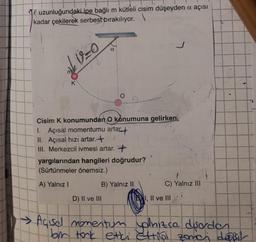 ℓ uzunluğundaki ipe bağlı m kütleli cisim düşeyden α açısı
kadar çekilerek serbest bırakılıyor.
ϑ=0
α
K
O
Cisim K konumundan O konumuna gelirken,
I. Açısal momentumu artar. +
II. Açısal hızı artar. +
III. Merkezcil ivmesi artar. +
yargılarından hangileri doğrudur?
(Sürtünmeler önemsiz.)
A) Yalnız I B) Yalnız II C) Yalnız III
D) II ve III I, II ve III
→ Açısal momentum yalnızca dışarıdan
bir tork etki ettiği zaman değişir